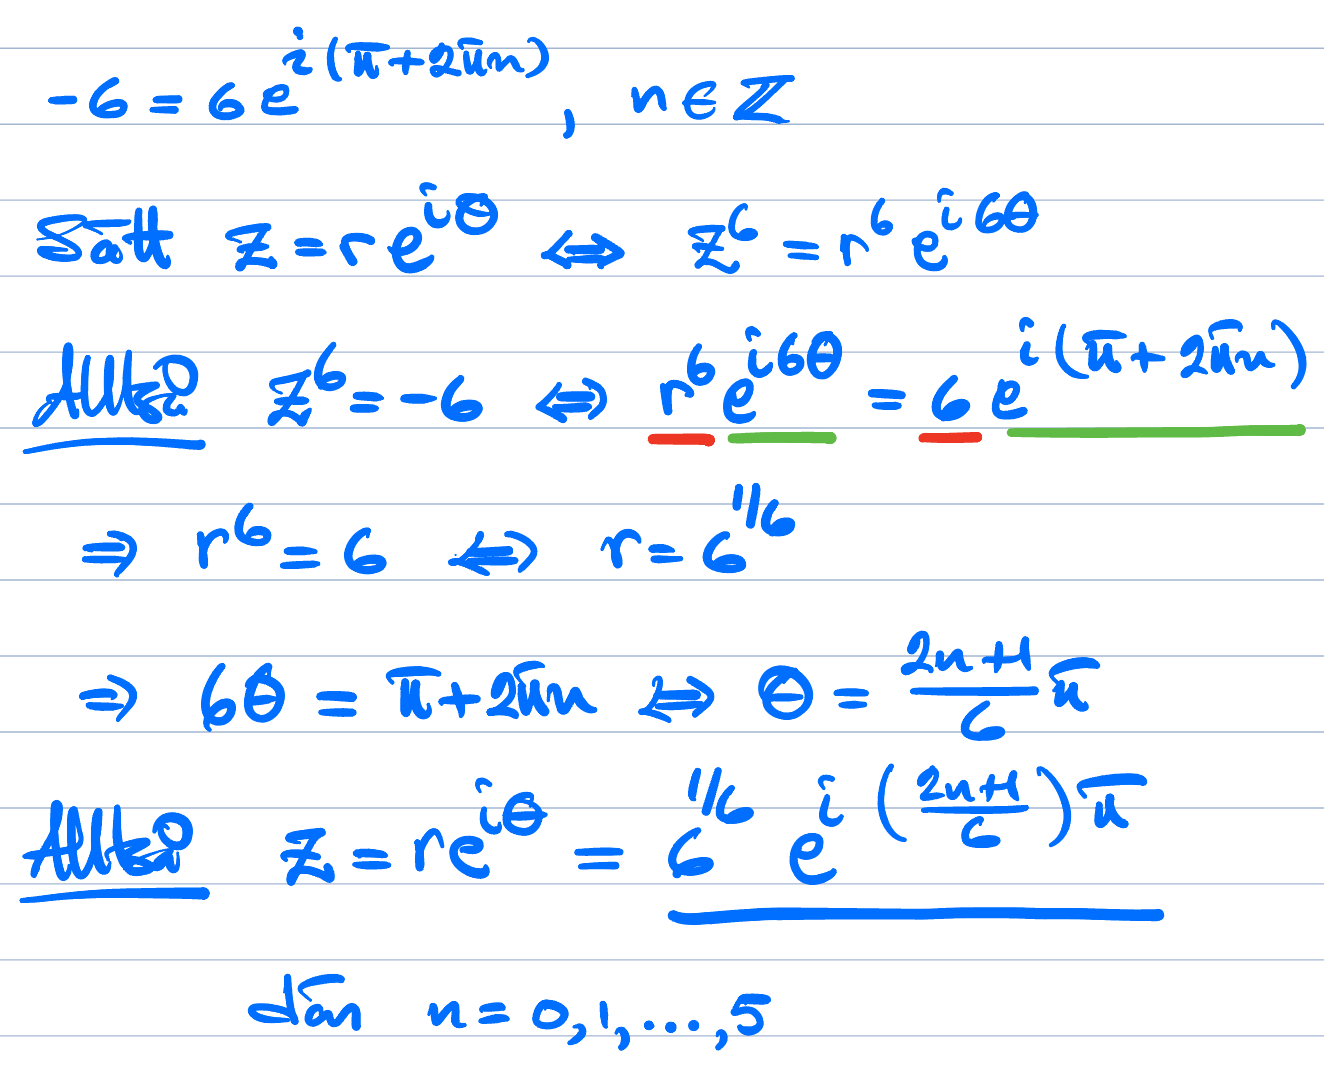 -6 = 6e^{i(π+2πn)}, n∈ℤ
Sätt z = re^{iθ} ⇔ z^6 = r^6 e^{i6θ}
Alltså z^6 = -6 ⇔ r^6 e^{i6θ} = 6 e^{i(π+2πn)}
⇒ r^6 = 6 ⇔ r = 6^{1/6}
⇒ 6θ = π+2πn ⇔ θ = \frac{2n+1}{6}π
Alltså z = re^{iθ} = 6^{1/6} e^{i(\frac{2n+1}{6})π}
där n = 0,1,...,5